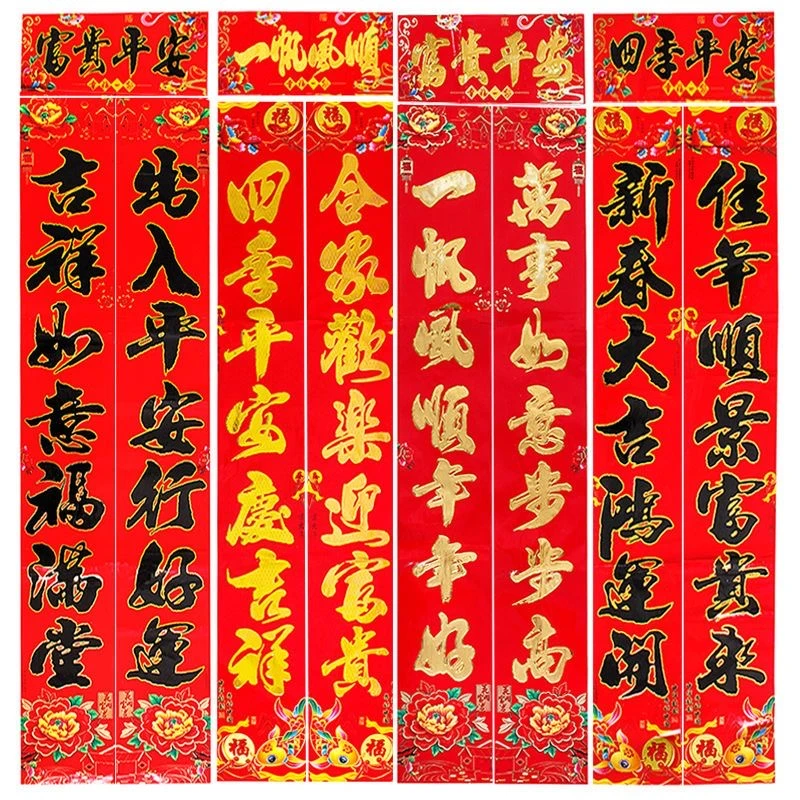 富貴平安
出入平安行好運
吉祥如意福滿堂
一帆風順
福
福
合家歡樂迎富貴
四季平安慶吉祥
福
福
富貴平安
萬事如意步步高
一帆風順年年好
四季平安
福
福
佳年順景富貴來
新春大吉鴻運開
福
福